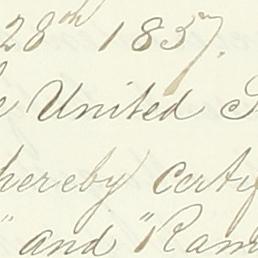 28th 1857.
United
hereby certif
" and "Ram